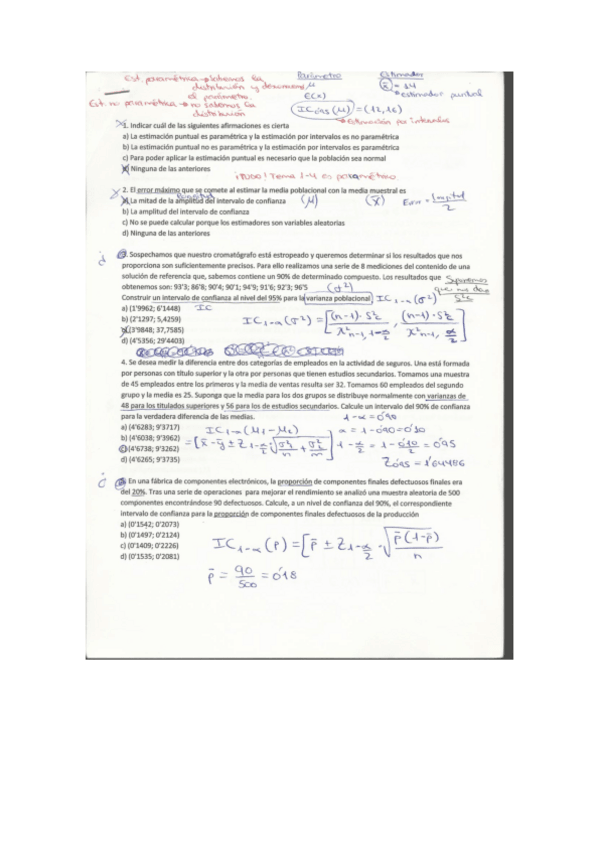 Est. paramétrica → sabemos la distribución y desconocemos el parámetro.
Est. no paramétrica → no sabemos la distribución
Parámetro
μ
E(x)
Estimador
x̄ = 14
→ estimador puntual
IC0'95 (μ) = (12,16)
→ Estimación por intervalos
1. Indicar cuál de las siguientes afirmaciones es cierta
a) La estimación puntual es paramétrica y la estimación por intervalos es no paramétrica
b) La estimación puntual no es paramétrica y la estimación por intervalos es paramétrica
c) Para poder aplicar la estimación puntual es necesario que la población sea normal
d) Ninguna de las anteriores
¡TODO! Tema 1-4 es paramétrico
2. El error máximo que se comete al estimar la media poblacional con la media muestral es
longitud
a) La mitad de la amplitud del intervalo de confianza (μ) (x̄) Error = longitud / 2
b) La amplitud del intervalo de confianza
c) No se puede calcular porque los estimadores son variables aleatorias
d) Ninguna de las anteriores
3. Sospechamos que nuestro cromatógrafo está estropeado y queremos determinar si los resultados que nos
proporciona son suficientemente precisos. Para ello realizamos una serie de 8 mediciones del contenido de una
solución de referencia que, sabemos contiene un 90% de determinado compuesto. Los resultados que
obtenemos son: 93'3; 86'8; 90'4; 90'1; 94'9; 91'6; 92'3; 96'5
(σ²)
Suponemos que nos da S²c
Construir un intervalo de confianza al nivel del 95% para la varianza poblacional IC1-α (σ²)
a) (1'9962; 6'1448) IC
b) (2'1297; 5,4259)
IC1-α (σ²) = [ (n-1)·S²c / χ²n-1, 1-α/2 , (n-1)·S²c / χ²n-1, α/2 ]
c) (3'9848; 37,7585)
d) (4'5356; 29'4403)
4. Se desea medir la diferencia entre dos categorías de empleados en la actividad de seguros. Una está formada
por personas con título superior y la otra por personas que tienen estudios secundarios. Tomamos una muestra
de 45 empleados entre los primeros y la media de ventas resulta ser 32. Tomamos 60 empleados del segundo
grupo y la media es 25. Suponga que la media para los dos grupos se distribuye normalmente con varianzas de
48 para los titulados superiores y 56 para los de estudios secundarios. Calcule un intervalo del 90% de confianza
para la verdadera diferencia de las medias.
1-α = 0'90
a) (4'6283; 9'3717) IC1-α (μ1-μ2) α = 1-0'90 = 0'10
b) (4'6038; 9'3962) = [x̄-ȳ ± Z1-α/2 · √(σ²1/n + σ²2/m)]
1-α/2 = 1-0'10/2 = 0'95
c) (4'6738; 9'3262)
d) (4'6265; 9'3735)
Z0'95 = 1'64486
5. En una fábrica de componentes electrónicos, la proporción de componentes finales defectuosos finales era
del 20%. Tras una serie de operaciones para mejorar el rendimiento se analizó una muestra aleatoria de 500
componentes encontrándose 90 defectuosos. Calcule, a un nivel de confianza del 90%, el correspondiente
intervalo de confianza para la proporción de componentes finales defectuosos de la producción
a) (0'1542; 0'2073)
b) (0'1497; 0'2124)
c) (0'1409; 0'2226)
d) (0'1535; 0'2081)
IC1-α (p) = [p̄ ± Z1-α/2 · √(p̄(1-p̄)/n)
p̄ = 90/500 = 0'18